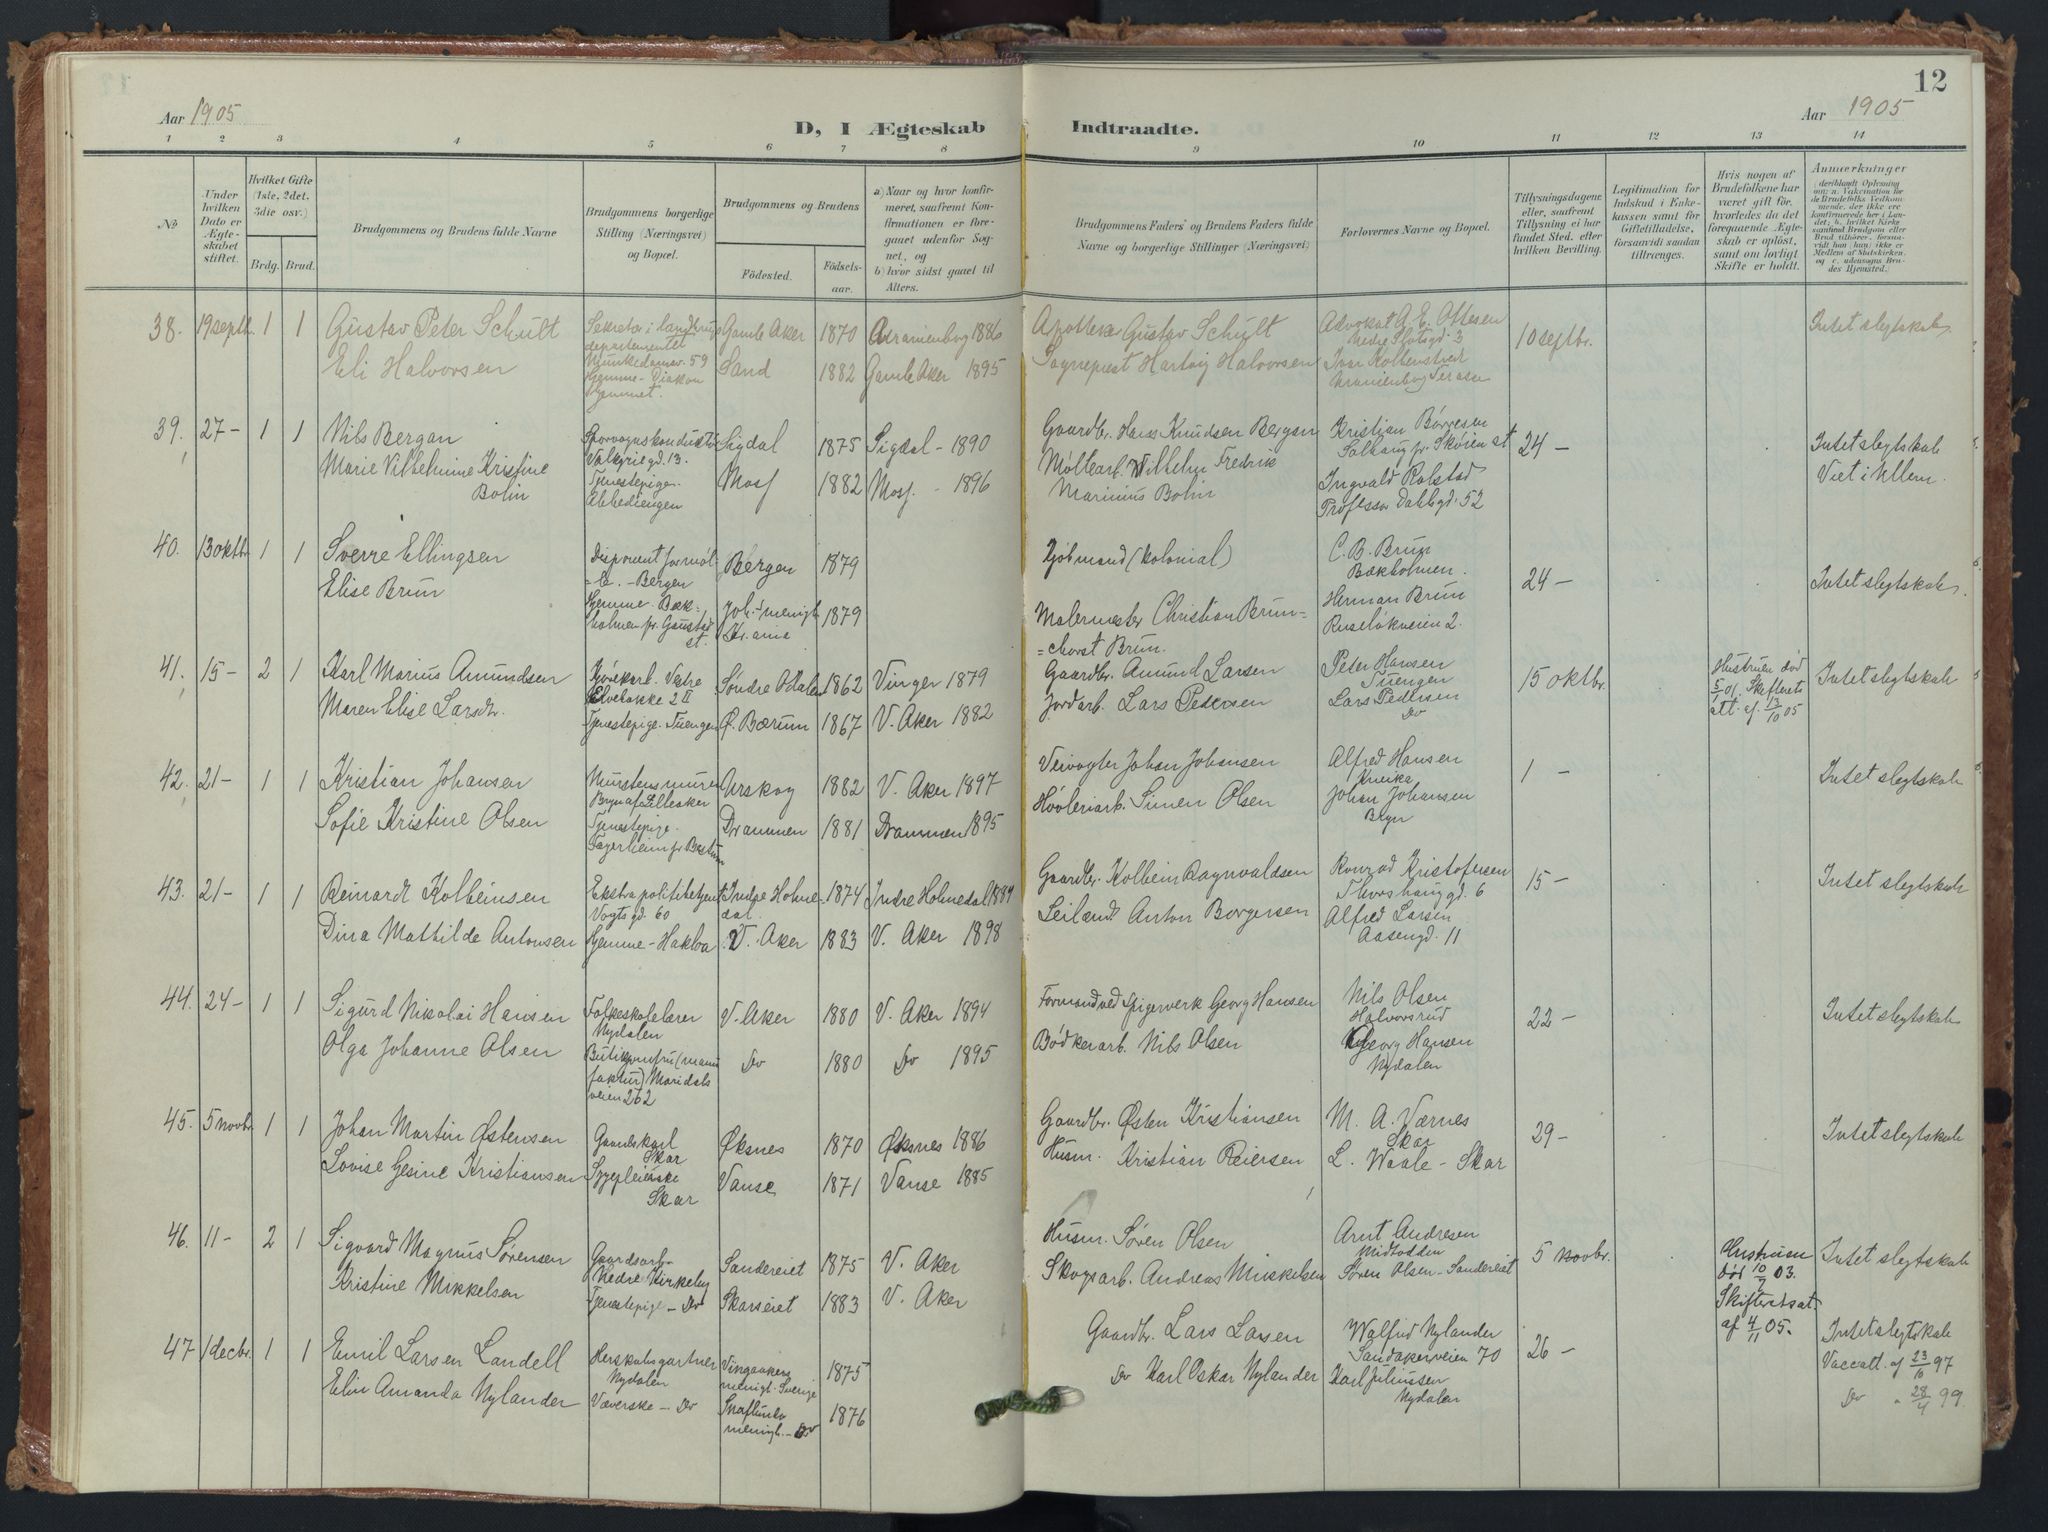 12
Aar 1905
D, I Ægteskab Indtraadte.
Aar 1905
1 2 3 4 5 6 7 8 9 10 11 12 13 14
No
Under hvilken Dato er Ægteskabet stiftet.
Hvilket Gifte (1ste, 2det, 3die osv.)
Brdg. Brud.
Brudgommens og Brudens fulde Navne
Brudgommens borgerlige Stilling (Næringsvei) og Bopæl.
Brudgommens og Brudens
Fødested. Fødsels-aar.
a) Naar og hvor konfirmeret, saafremt Konfirmationen er foregaaet udenfor Sognet, og
b) hvor sidst gaaet til Alters.
Brudgommens Faders og Brudens Faders fulde Navne og borgerlige Stillinger (Næringsvei)
Forlovernes Navne og Bopæl.
Tillysningsdagene eller, saafremt Tillysning ei har fundet Sted, efter hvilken Bevilling.
Legitimation for Indskud i Enkekassen samt for Giftetilladelse, forsaavidt saadan tiltrænges.
Hvis nogen af Brudefolkene har været gift før, hvorledes da det foregaaende Ægteskab er opløst, samt om lovligt Skifte er holdt.
Anmerkninger
38. 19 septb. 1 1 Gustav Peter Schult Sekretær i landbrugsdepartementet Munkedamsv. 59 Gamle Aker 1870 Uranienborg 1886 Apotheker Gustav Schult Advokat A. E. Ottesen Nedre Slotsgd. 3 10 septbr. Intet slegtskab
Eli Halvorsen Hjemme - Sand 1882 Gamle Aker 1895 Sogneprest Hartvig Halvorsen Uranienborg Terasse
39. 27 - 1 1 Nils Bergan Sporvognskonduktør Valkyriegd. 13. Sigdal 1875 Sigdal - 1890 Gaardbr. Hans Knudsen Bergan Kristian Børresen Solhaug pr. Skøien st 24 - Intet slegtskab
Marie Vilhelmine Kristine Bolin Tjenestepige. Abbediengen Moss 1882 Moss. - 1896 Møllearb. Wilhelm Fredrik Marinius Bolin Ingvald Rolstad Professor Dahlsgd. 52 Viet i Ullern.
40. 13 oktb. 1 1 Sverre Ellingsen Disponent - Bergen Bergen 1879 Kjøbmand (kolonial) C. B. Brun Bækholmen. 24 - Intet slegtskab.
Elise Brun Hjemme. Bækholmen pr. Gaustad st. Joh. menigh. Kr.ania 1879 Malermester Christian Brunchorst Brun. Herman Brun Ruseløkveien 2.
41. 15 - 2 1 Karl Marius Amundsen Kjørekarl. Vestre Elvebakke 2 II Søndre Odalen 1862 Vinger 1879 Gaardbr. Amund Larsen Peter Hansen Tuengen 15 oktbr. Hustruen død 5/1 01. Skifteretsatt. af 13/10 05 Intet slegtskab
Maren Elise Larsdr. Tjenestepige. Tuengen Ø. Bærum 1867 V. Aker 1882 Jordarb. Lars Pedersen Lars Pedersen Do
42. 21 - 1 1 Kristian Johansen Murstensmurer Bryn af Lilleaker Urskog 1882 V. Aker 1897 Veivogter Johan Johansen Alfred Hansen 1 - Intet slegtskab
Sofie Kristine Olsen Tjenestepige. Fagerheim pr Bestum Drammen 1881 Drammen 1895 Høvleriarb. Simen Olsen Johan Johansen Bryn
43. 21 - 1 1 Reinardt Kolbeinsen Ekstrapolitibetjent Vogtsgd. 60 Indre Holmedal. 1874 Indre Holmedal 1889 Gaardbr. Kolbein Ragnvaldsen Konrad Kristofersen Thorshauggd. 6 15 - Intet slegtskab
Dina Mathilde Antonsen Hjemme - Hakloa V. Aker 1883 V. Aker 1898 Anton Borgersen Alfred Larsen Aasengd. 11
44. 24 - 1 1 Sigurd Nikolai Hansen Folkeskolelærer Nydalen V. Aker 1880 V. Aker 1894 Formand ved Spigerverk Georg Hansen Nils Olsen Halvorsrud 22 - Intet slegtskab
Olga Johanne Olsen Butikjomfru (manufaktur) Maridalsveien 262 Do 1880 Do 1895 Bødkerarb. Nils Olsen Georg Hansen Nydalen
45. 5 novbr. 1 1 Johan Martin Østensen Gaardskarl Skar Øksnes 1870 Øksnes 1886 Gaardbr. Østen Kristiansen M. A. Værnes Skar 29 - Intet slegtskab
Lovise Gesine Kristiansen Sygepleierske Skar Vanse 1871 Vanse 1885 Husm. Kristian Reiersen L. Waale - Skar
46. 11 - 2 1 Sigvard Magnus Sørensen Gaardsarb. Nedre Kirkeby Sandereiet 1875 V. Aker Husm. Søren Olsen Arnt Andresen Midtodden 5 novbr. Hustruen død 10/7 03. Skifteretsat. af 4/11 05. Intet slegtskab
Kristine Mikkelsen Tjenestepige - Do Skarseiet 1883 V. Aker Skogsarb. Andreas Mikkelsen Søren Olsen - Sandereiet
47 1 decbr. 1 1 Emil Larsen Landell Herskabsgartner Nydalen Vingaakers menigh. Sverige 1875 Gaardbr. Lars Larsen Walfrid Nylander Sandakerveien 70 26 - Intet slegtskab Vaccatt. af 23/10 97
Elin Amanda Nylander Væverske - Do menigh. - Do 1876 Do Karl Oskar Nylander Karl Juliussen Nydalen Do " 28/4 99.